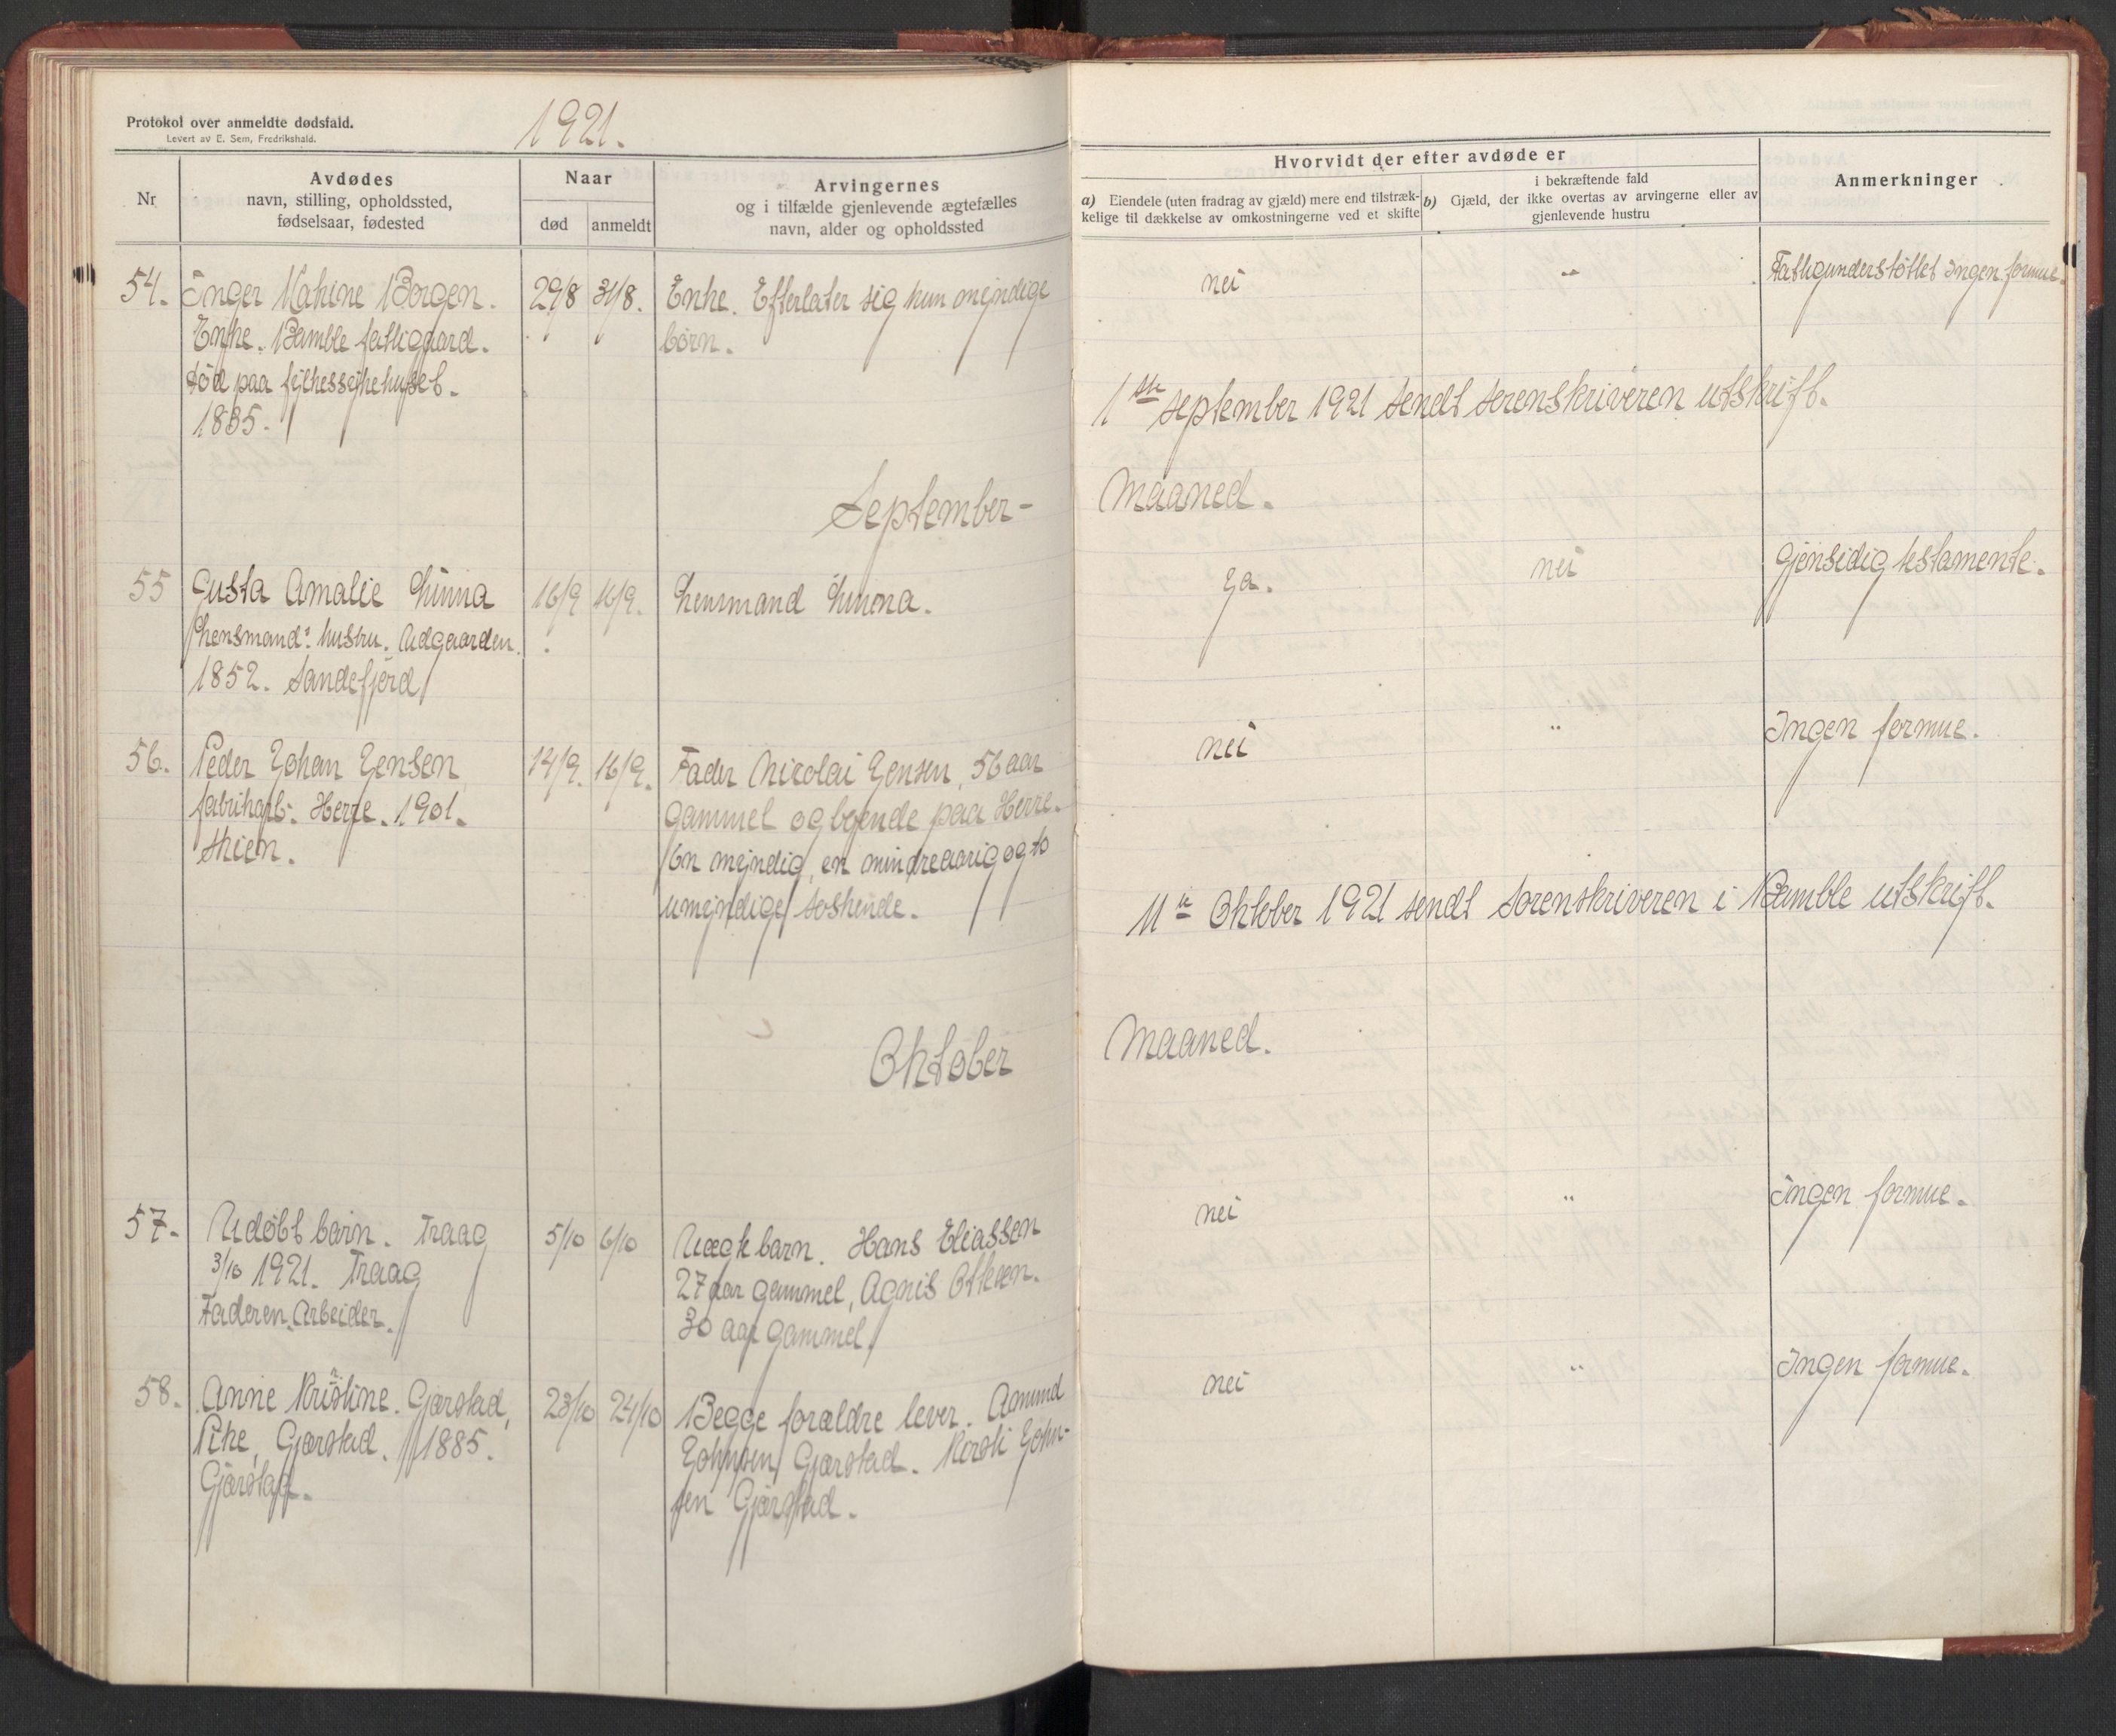 Protokol over anmeldte dødsfald.
Levert av E. Sem, Fredrikshald.
1921.
Nr.
Avdødes
navn, stilling, opholdssted,
fødselsaar, fødested
Naar
død
anmeldt
Arvingernes
og i tilfælde gjenlevende ægtefælles
navn, alder og opholdssted
Hvorvidt der efter avdøde er
a) Eiendele (uten fradrag av gjæld) mere end tilstræk-
kelige til dækkelse av omkostningerne ved et skifte
b) Gjæld, der ikke overtas av arvingerne eller av
i bekræftende fald
gjenlevende hustru
Anmerkninger
54. Inger Katrine Borgen.
Enke. Bamble fattiggaard.
død paa fylkessykehuset.
1835.
29/8 31/8.
Enke. Efterlater sig kun myndige
børn.
nei " Fattigunderstøttet Ingen formue.
1ste september 1921 sendt sorenskriveren utskrift.
September- Maaned.
55 Gusta Amalie Linna
Lensmands hustru. Udgaarden.
1852. Sandefjord
16/9 16/9.
Lensmand Linna.
Ja. nei Gjensidig testamente.
56. Peder Johan Jensen
fabrikarb. Herre. 1901.
Skien.
14/9. 16/9.
Fader Nicolai Jensen, 56 aar
gammel og boende paa Herre.
En myndig, en mindreaarig og to
umyndige søskende.
nei " Ingen formue.
11te Oktober 1921 sendt Sorenskriveren i Bamble utskrift.
Oktober Maaned.
57. Udøbt barn. Traag
3/10 1921. Traag
Faderen Arbeider.
5/10 6/10
Uægte barn. Hans Eliassen
27 aar gammel, Agnis Olsen.
30 aar gammel
nei " Ingen formue.
58. Anne Kristine. Gjærstad,
Pike, Gjærstad. 1885.
Gjærstad.
23/10 24/10
Begge forældre lever. Amund
Johnsen Gjærstad. Kirsti John-
sen Gjærstad.
nei " Ingen formue.